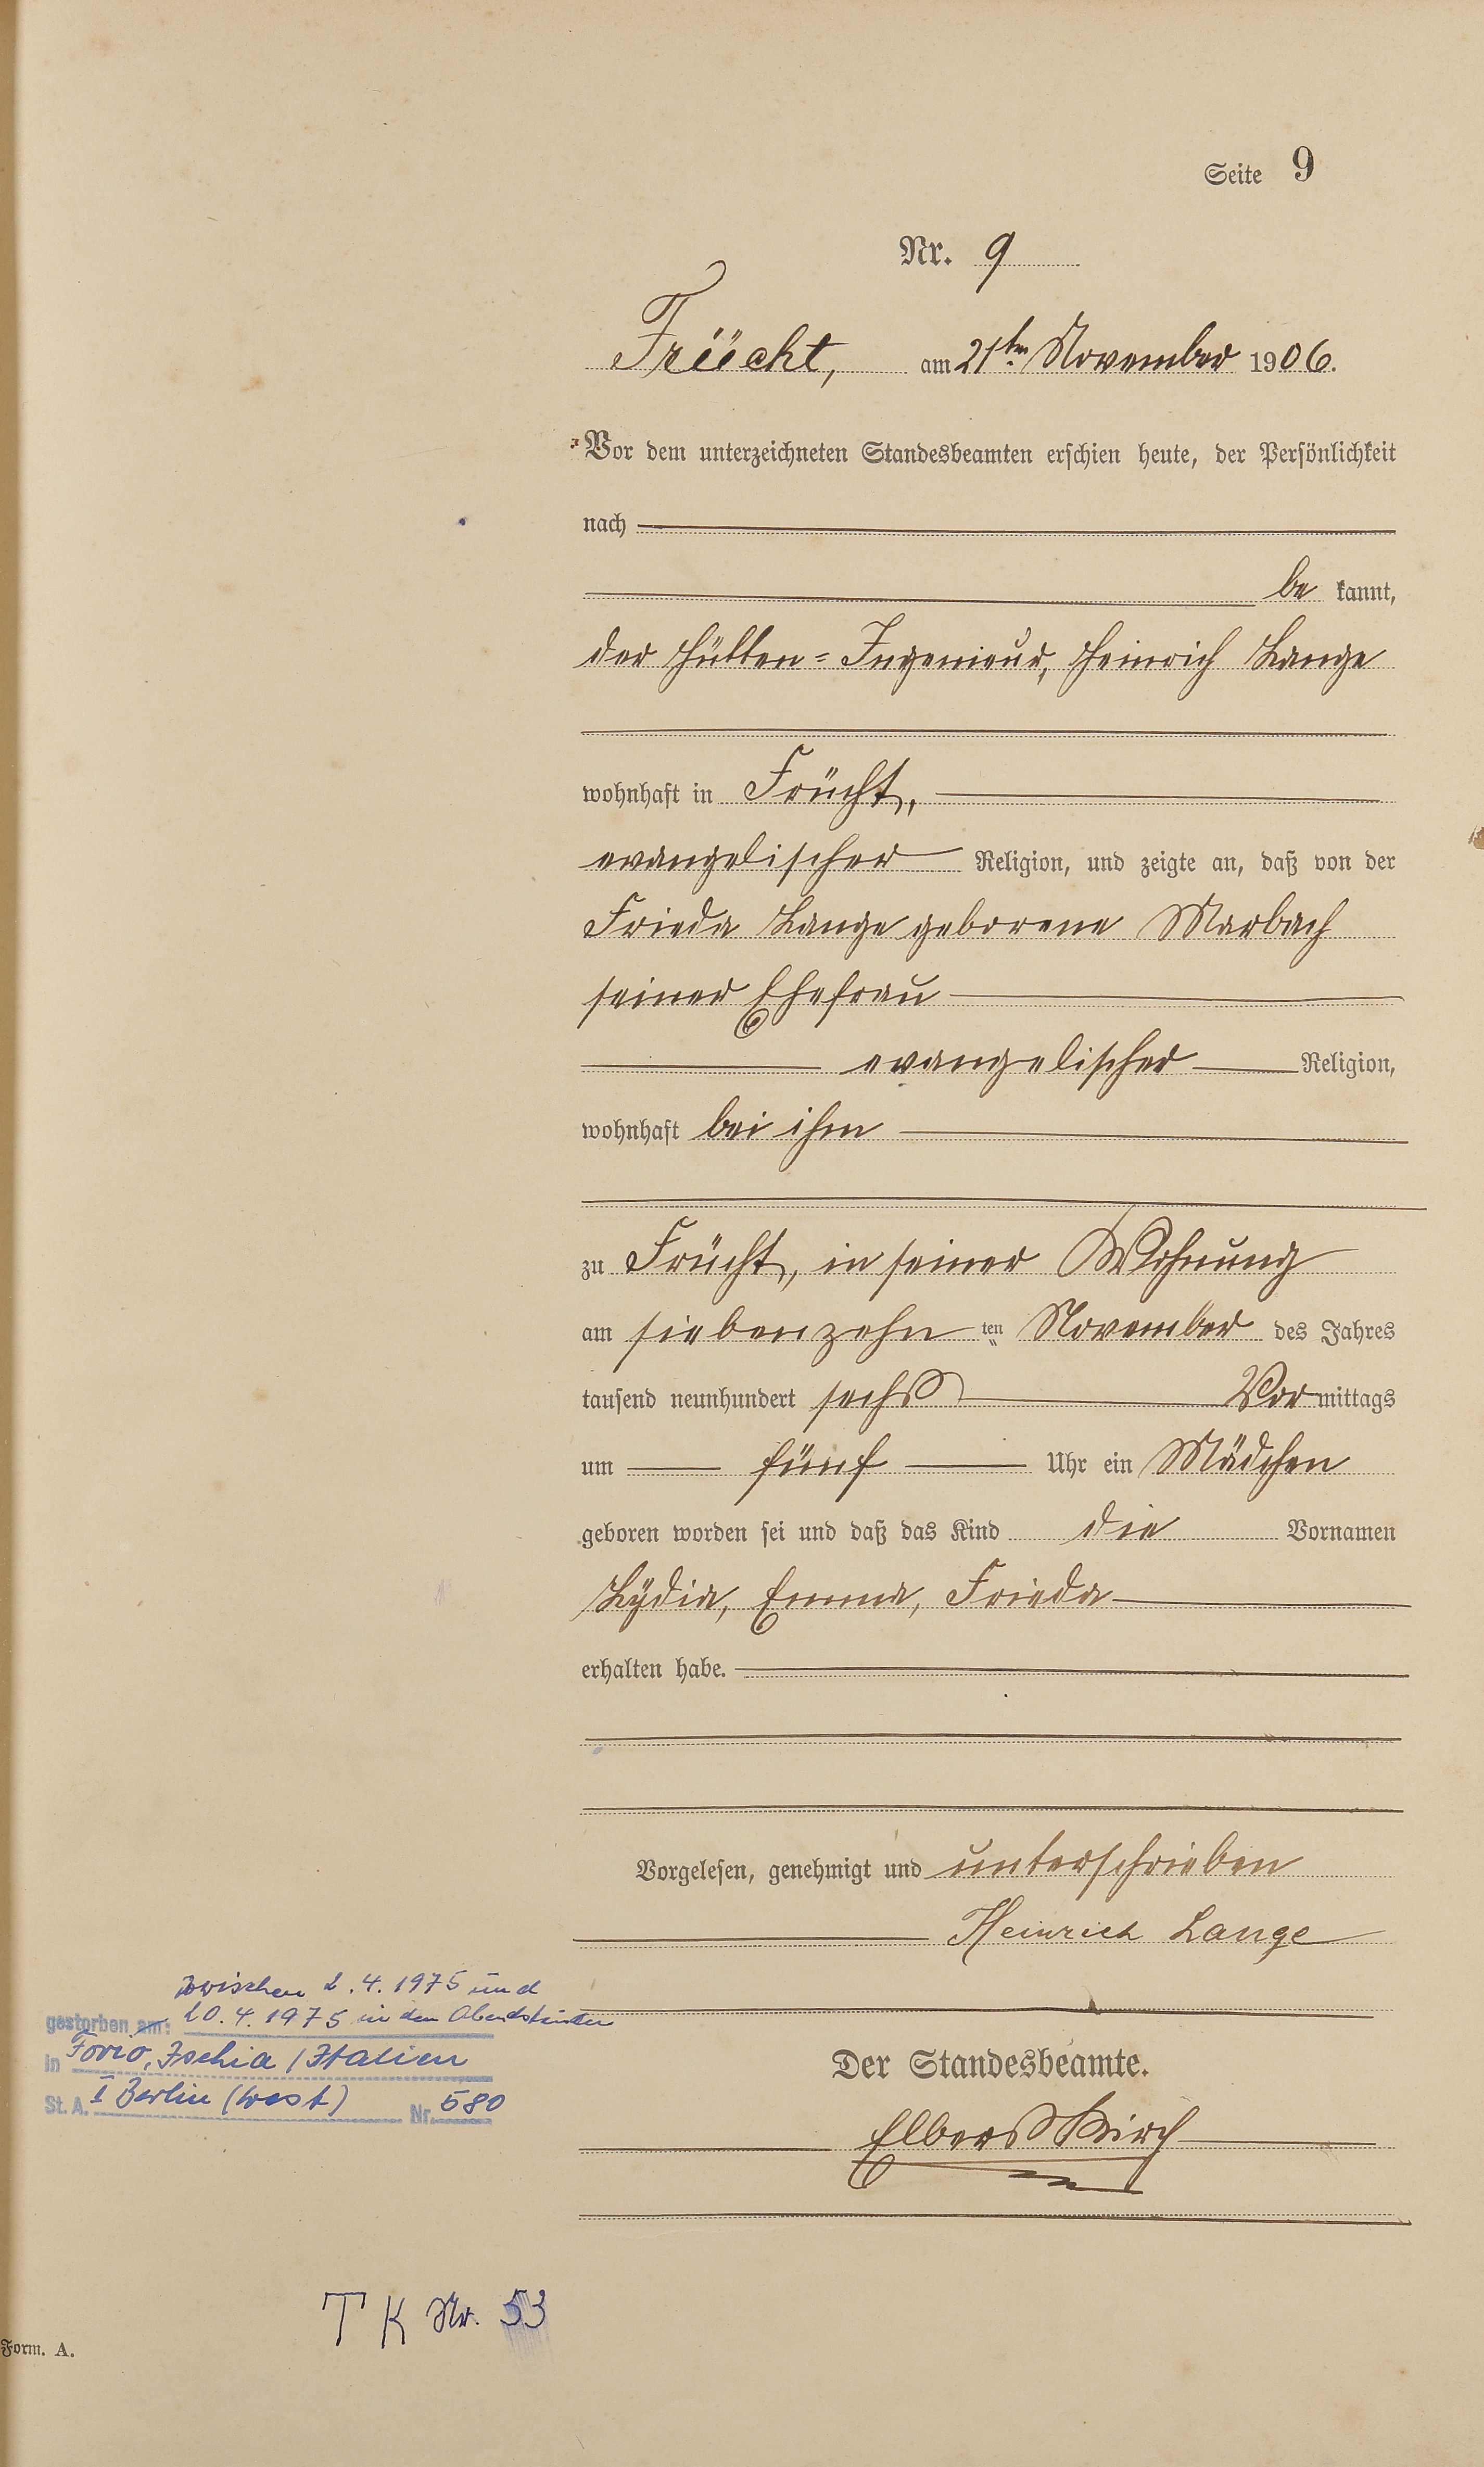 Seite 9
Nr. 9
Frücht, am 21ten November 1906.
Vor dem unterzeichneten Standesbeamten erschien heute, der Persönlichkeit
nach
be kannt,
der Hütten=Ingenieur, Heinrich Lange
wohnhaft in Frücht,
evangelischer Religion, und zeigte an, daß von der
Frieda Lange geborene Marbach
seiner Ehefrau
evangelischer Religion,
wohnhaft bei ihm
zu Frücht, in seiner Wohnung
am siebenzehn ten November des Jahres
tausend neunhundert sechs Vormittags
um fünf Uhr ein Mädchen
geboren worden sei und daß das Kind die Vornamen
Lÿdia, Emma, Frieda
erhalten habe.
Vorgelesen, genehmigt und unterschrieben
Heinrich Lange
zwischen 2.4.1975 und
gestorben am: 20.4.1975 in den Abendstunden
in Forio, Ischia / Italien
St. A. I Berlin (West) Nr. 580
Der Standesbeamte.
Elberskirch
T K Nr. 53
Form. A.